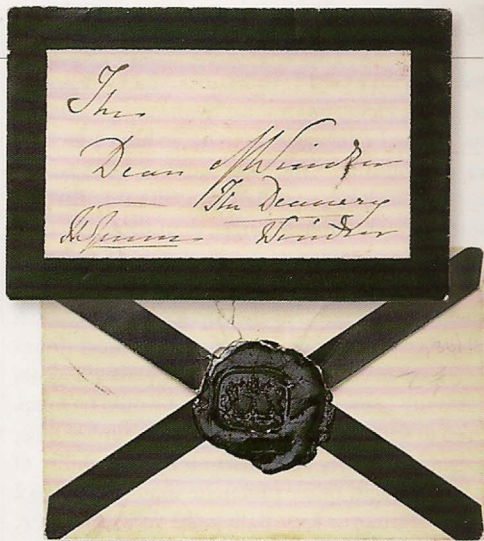 The
Dean of Windsor
The Deanery
The Queen Windsor